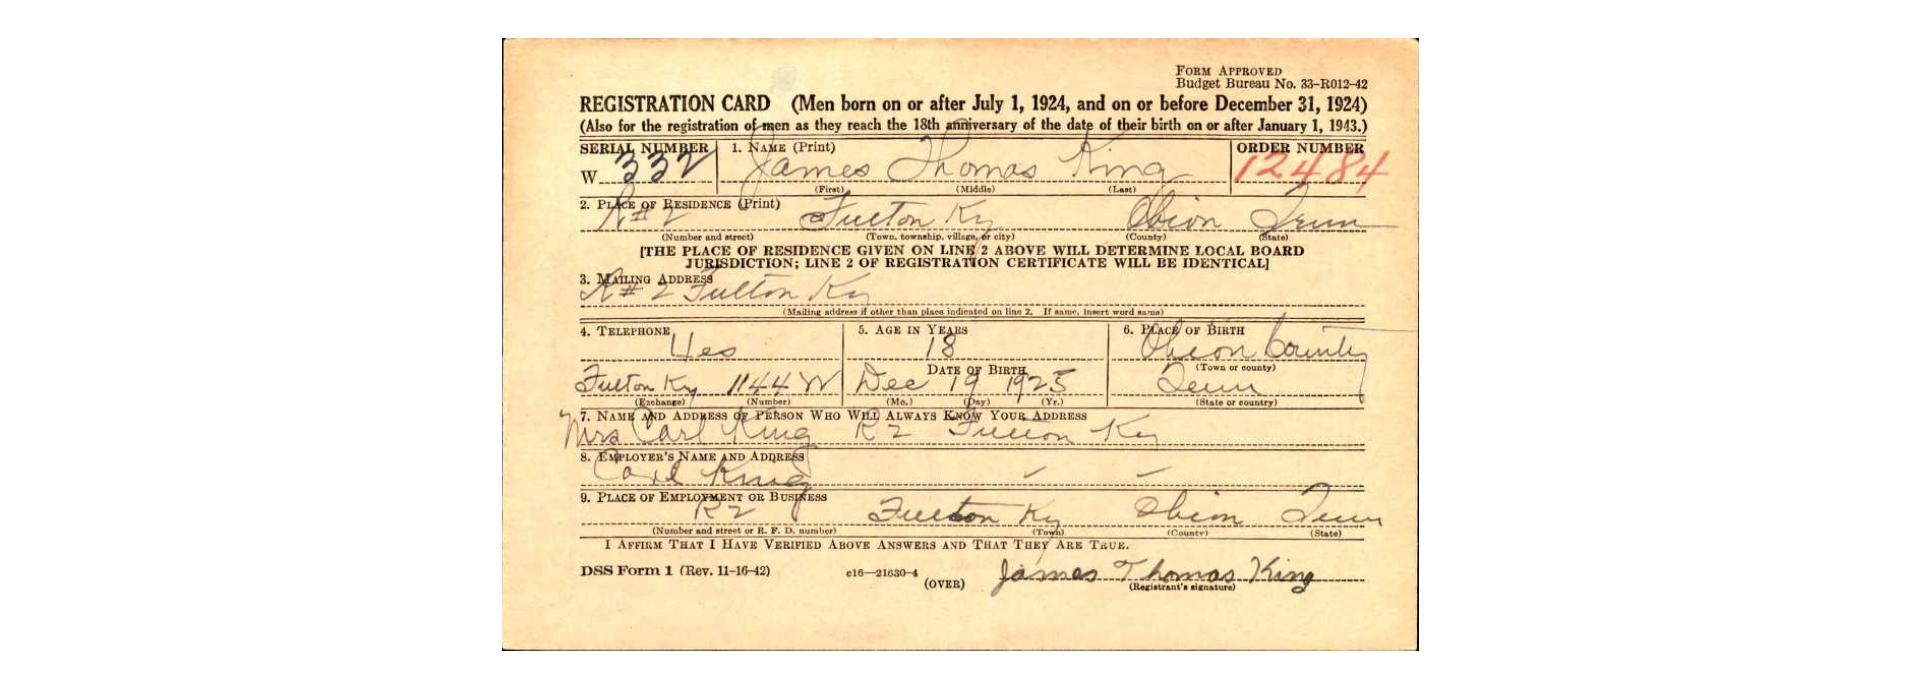 FORM APPROVED
Budget Bureau No. 33-R012-42
REGISTRATION CARD (Men born on or after July 1, 1924, and on or before December 31, 1924)
(Also for the registration of men as they reach the 18th anniversary of the date of their birth on or after January 1, 1943.)
SERIAL NUMBER 1. NAME (Print) ORDER NUMBER
W 332 James Thomas King 12484
(First) (Middle) (Last)
2. PLACE OF RESIDENCE (Print)
R#2 Fulton Ky Obion Tenn
(Number and street) (Town, township, village, or city) (County) (State)
[THE PLACE OF RESIDENCE GIVEN ON LINE 2 ABOVE WILL DETERMINE LOCAL BOARD
JURISDICTION; LINE 2 OF REGISTRATION CERTIFICATE WILL BE IDENTICAL]
3. MAILING ADDRESS
R#2 Fulton Ky
(Mailing address if other than place indicated on line 2. If same, insert word same)
4. TELEPHONE 5. AGE IN YEARS 6. PLACE OF BIRTH
Yes 18 Obion County
DATE OF BIRTH (Town or county)
Fulton Ky 1144W Dec 19 1925 Tenn
(Exchange) (Number) (Mo.) (Day) (Yr.) (State or country)
7. NAME AND ADDRESS OF PERSON WHO WILL ALWAYS KNOW YOUR ADDRESS
Mrs Carl King R2 Fulton Ky
8. EMPLOYER'S NAME AND ADDRESS
Carl King
9. PLACE OF EMPLOYMENT OR BUSINESS
R2 Fulton Ky Obion Tenn
(Number and street or R. F. D. number) (Town) (County) (State)
I AFFIRM THAT I HAVE VERIFIED ABOVE ANSWERS AND THAT THEY ARE TRUE.
DSS Form 1 (Rev. 11-16-42) c16—21630-4 (OVER) James Thomas King
(Registrant's signature)